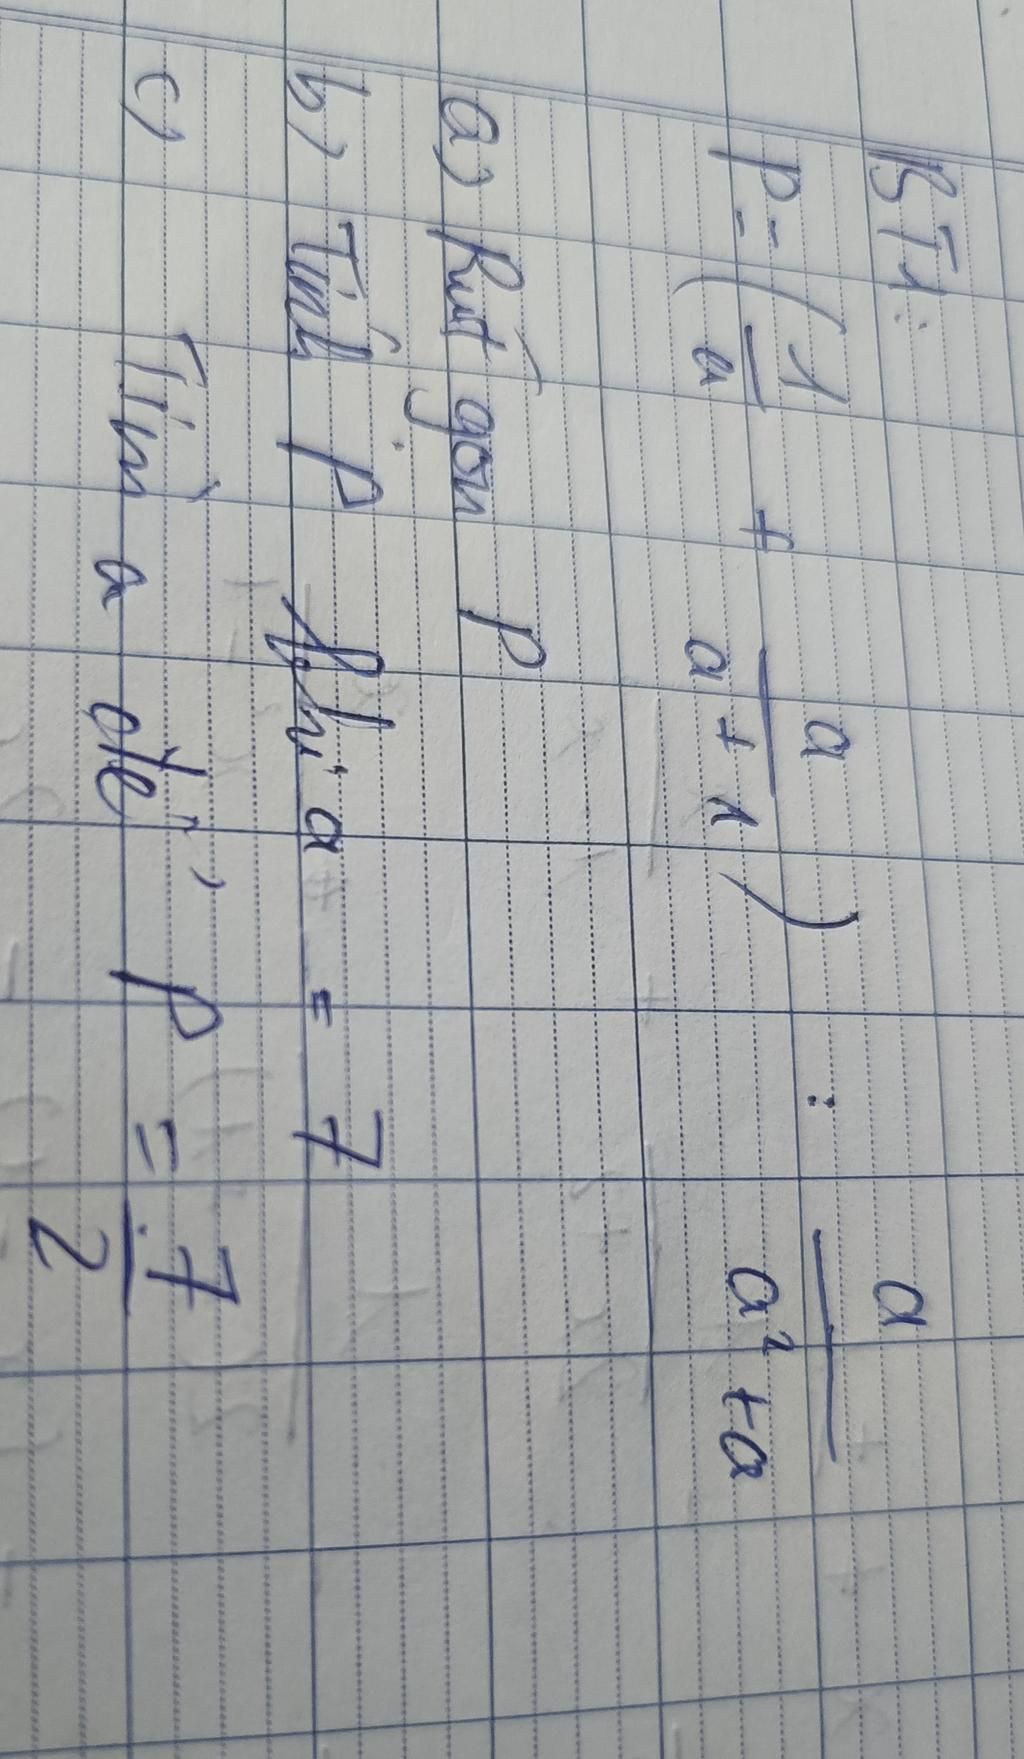 BT1:
P = (1/a + a/a+1) : a/a²+a
a) Rút gọn P
b) Tính P khi a = 7
c) Tìm a để P = 7/2